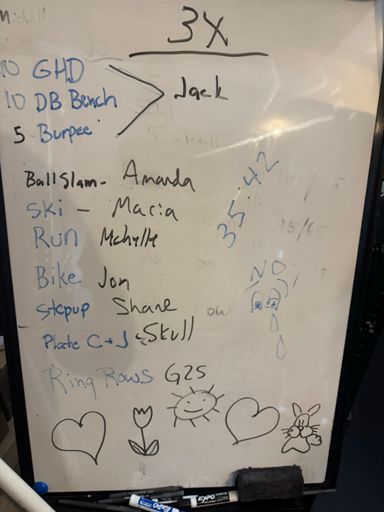 3X
10 GHD
10 DB Bench
5 Burpee
Jack
Ball Slam - Amanda
Ski - Maria
Run Mchylle
35:42
Bike Jon
NO
Stepup Shane
ow
Plate C+J - Skull
Ring Rows G25
EXPO
EXPO